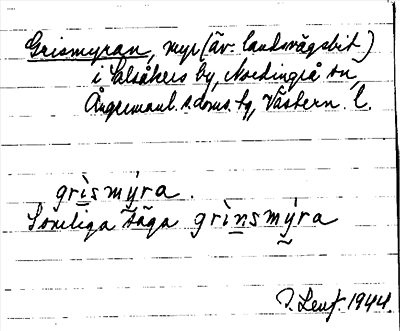 Grismyran, myr (äv. landsvägsbit)
i Salsåkers by, Nordingrå sn,
Ångermanl. s. doms. tg, Västern. l.
grìsmýra.
Somliga säga grìnsmýra
1944.